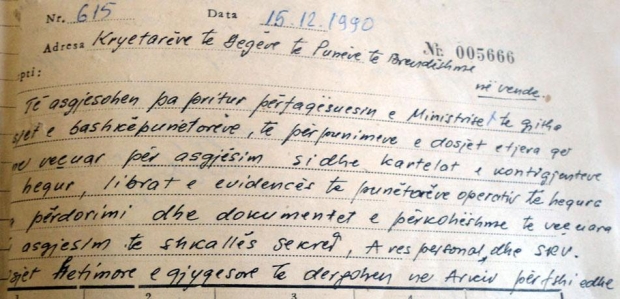 Nr. 615 Data 15.12.1990
Adresa Kryetarëve të Degëve të Punëve të Brendëshme
№ 005666
në vende.
pti:
Të asgjesohen pa pritur përfaqësuesin e Ministrisë të gjitha
sjet e bashkëpunëtorëve, të përpunimeve e dosjet etjera që
veçuar për asgjësim sidhe kartelat e kontigjenteve
hequr, librat e evidencës të punëtorëve operativ të hequra
përdorimi dhe dokumentet e përkohëshme të veçuara
asgjesim të shkallës sekret, A res personal, dhe SRV.
sjet hetimore e gjyqësore të dergohen në Arkiv përfshi edhe
1 2 3 4